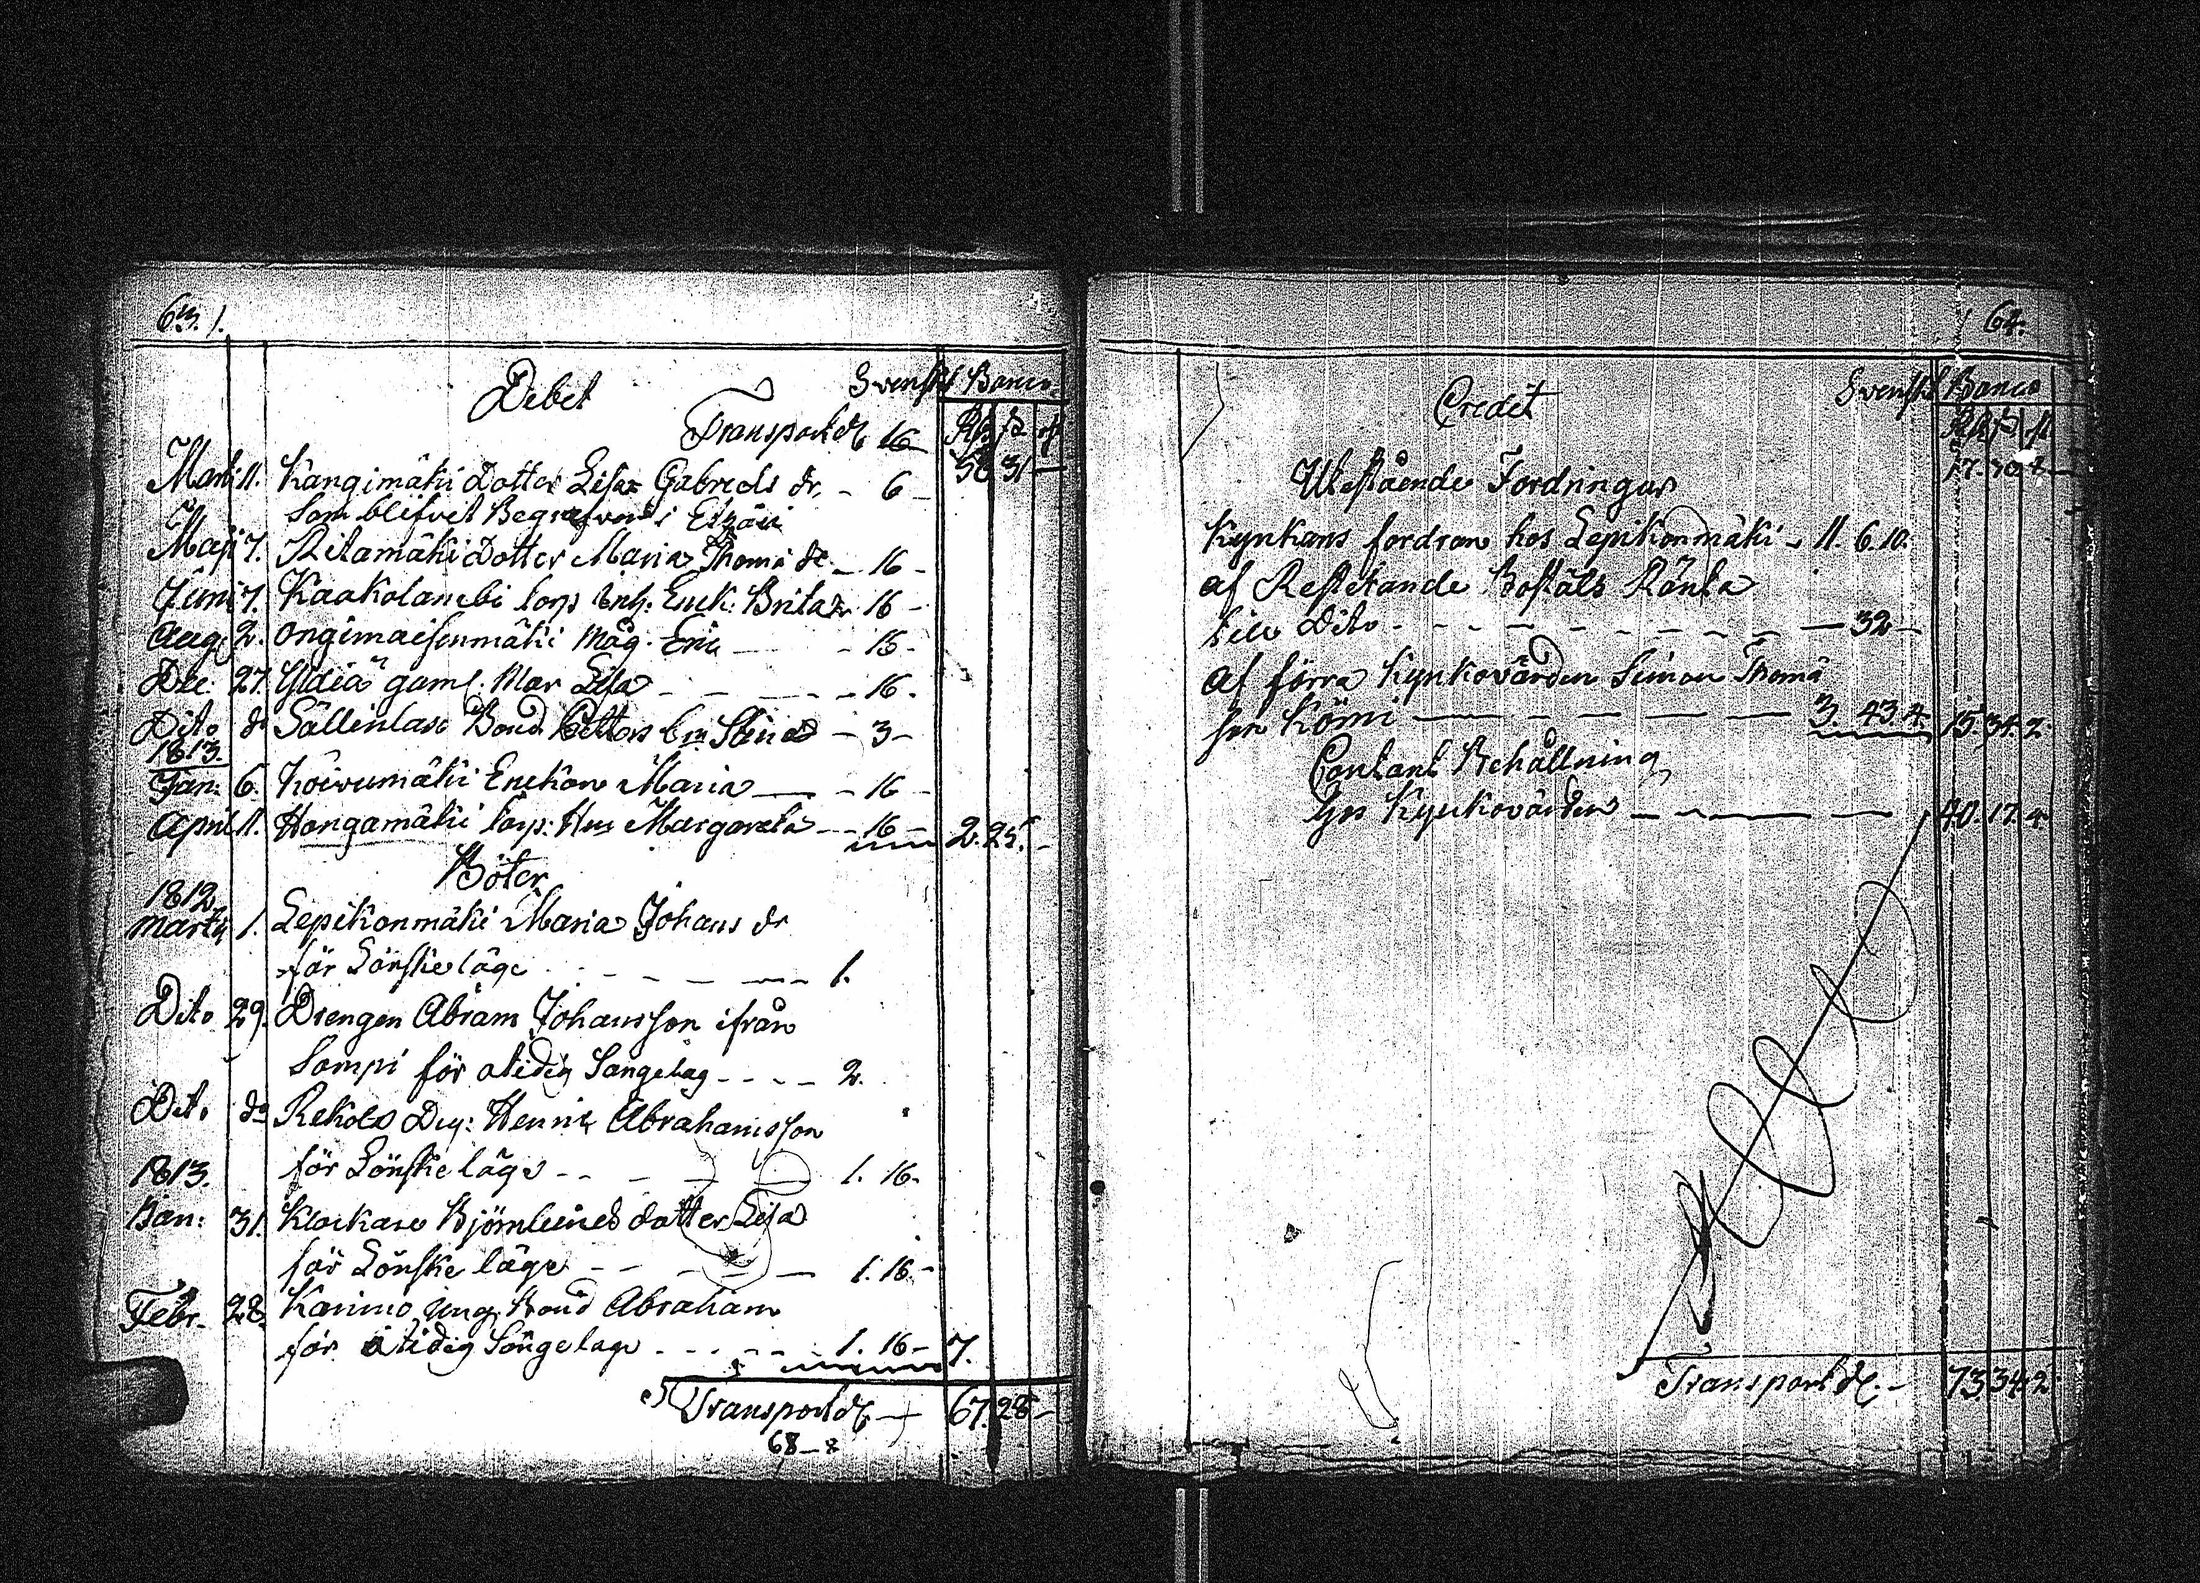 63.
Debet
Svenskt Banco
Transport 16
Rd ß
58 31 —
Martii 11. Kangimäki Dotter Lisa Gabriels dr. - 6 -
som blifvit Begrafven i Etzäri
Maji 7. Ritamäki Dotter Maria Thoma dr. - 16 -
Junii 7. Kaakolambi torp Enk: Brita 16 -
Aug. 2. Ongimaisenmäki Måg. Eric - 16 -
Dec: 27. Ylöiä gaml. Mor Lisa - 16 -
Dito do Sällinlax Bond - 3 -
1813.
Jan: 6. Koivumäki Enckan Maria - 16 -
April 11. Hangamäki torp: Hus Margareta - 16 - 2. 25. -
Böter
1812
Martii 1. Lepikonmäki Maria Johans dr
för Lönskeläge - - - - 1.
Dito 29. Drengen Abram Johansson ifrån
Sompi för otidig Sängelag - - - - 2.
Dito do Rekola Drg: Henric Abrahamsson
för Lönskeläge - - - 1. 16 -
1813.
Jan: 31. Klockare Björnlunds dotter Lisa
för Lönskeläge - - - 1. 16 -
Febr. 28. Karimo ung. Bond Abraham
för otidig Sängelage - - - 1. 16 - 7.
Transport 67. 28 -
68 - 8
64.
Credit
Svenskt Banco
Utestående Fordringar
Kyrkans fordran hos Lepikonmäki - 11. 6. 10.
af Resterande Boställs Ränta
till Dito - - - - 32 -
af förra Kyrkovärden Simon Thomä
son Kömi - - - 3. 43. 4. 15. 34. 2.
Contant Behållning
hos Kyrkovärden - - - 40. 17. 4
Transport - 73 34 2